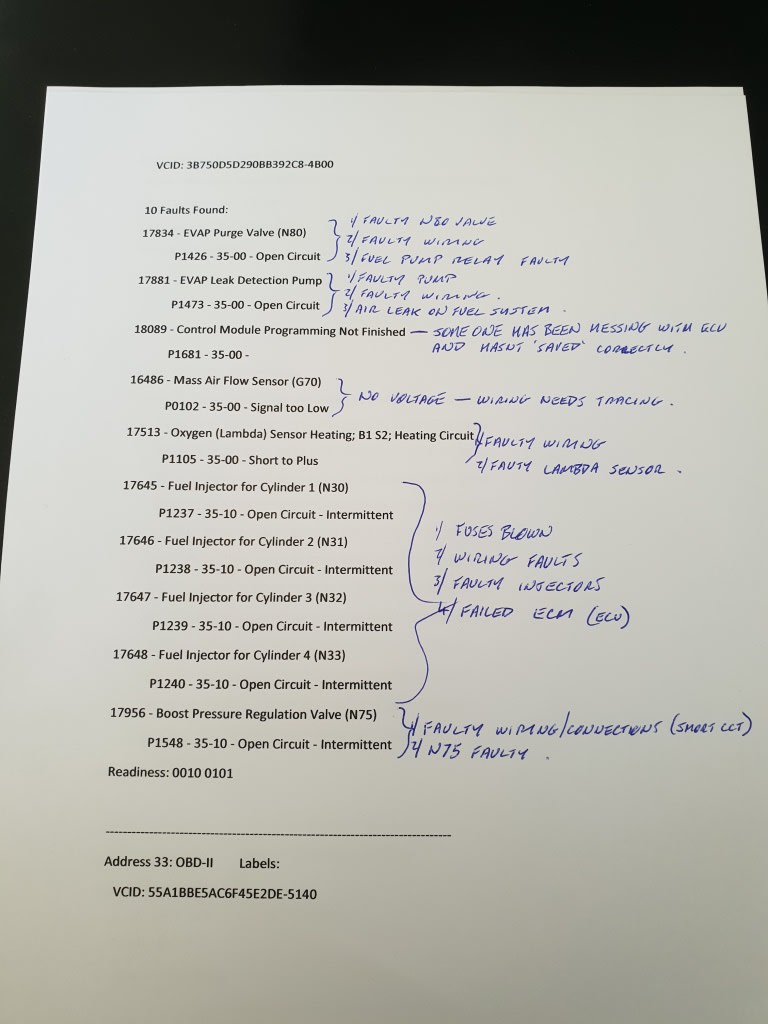 VCID: 3B750D5D290BB392C8-4B00
10 Faults Found:
1/ FAULTY N80 VALVE
17834 - EVAP Purge Valve (N80)
2/ FAULTY WIRING
P1426 - 35-00 - Open Circuit
3/ FUEL PUMP RELAY FAULTY
17881 - EVAP Leak Detection Pump
1/ FAULTY PUMP
2/ FAULTY WIRING.
P1473 - 35-00 - Open Circuit
3/ AIR LEAK ON FUEL SYSTEM.
18089 - Control Module Programming Not Finished — SOMEONE HAS BEEN MESSING WITH ECU
AND HASNT 'SAVED' CORRECTLY.
P1681 - 35-00 -
16486 - Mass Air Flow Sensor (G70)
NO VOLTAGE — WIRING NEEDS TRACING.
P0102 - 35-00 - Signal too Low
17513 - Oxygen (Lambda) Sensor Heating; B1 S2; Heating Circuit
1/ FAULTY WIRING
P1105 - 35-00 - Short to Plus
2/ FAUTY LAMBDA SENSOR.
17645 - Fuel Injector for Cylinder 1 (N30)
P1237 - 35-10 - Open Circuit - Intermittent
1/ FUSES BLOWN
17646 - Fuel Injector for Cylinder 2 (N31)
2/ WIRING FAULTS
P1238 - 35-10 - Open Circuit - Intermittent
3/ FAULTY INJECTORS
17647 - Fuel Injector for Cylinder 3 (N32)
4/ FAILED ECM (ECU)
P1239 - 35-10 - Open Circuit - Intermittent
17648 - Fuel Injector for Cylinder 4 (N33)
P1240 - 35-10 - Open Circuit - Intermittent
17956 - Boost Pressure Regulation Valve (N75)
1/ FAULTY WIRING/CONNECTIONS (SHORT CCT)
P1548 - 35-10 - Open Circuit - Intermittent
2/ N75 FAULTY.
Readiness: 0010 0101
-------------------------------------------------------------------------------
Address 33: OBD-II Labels:
VCID: 55A1BBE5AC6F45E2DE-5140